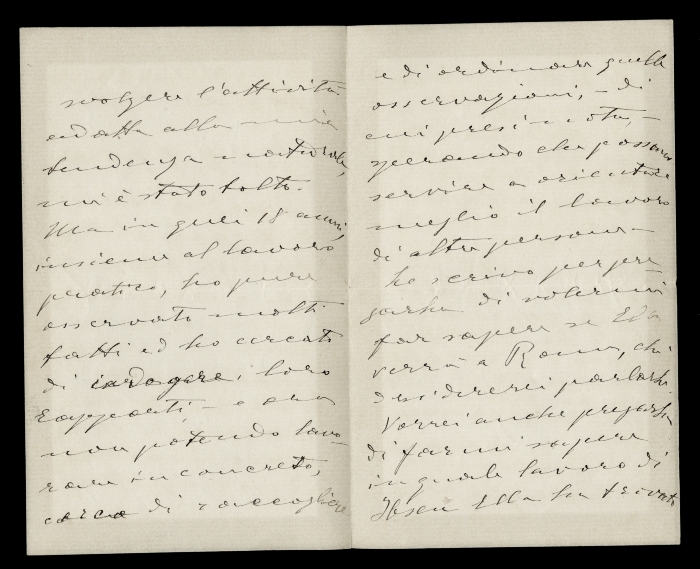 svolgere l'attività
adatta alla mia
tendenza naturale,
mi è stato tolto.
Ma in quei 18 anni,
insieme al lavoro
pratico, ho pure
osservato molti
fatti ed ho cercato
di indagare i loro
rapporti – e ora
non potendo lavo-
rare in concreto,
cerco di raccogliere
e di ordinare quelle
osservazioni, – di
cui presi nota, –
sperando che possano
servire a orientare
meglio il lavoro
di altre persone –
Le scrivo per pre
garla di volermi
far sapere se Ella
verrà a Roma, chè
desidererei parlarLe.
Vorrei anche pregarLa
di farmi sapere
in quale lavoro di
Ibsen Ella ha trovato